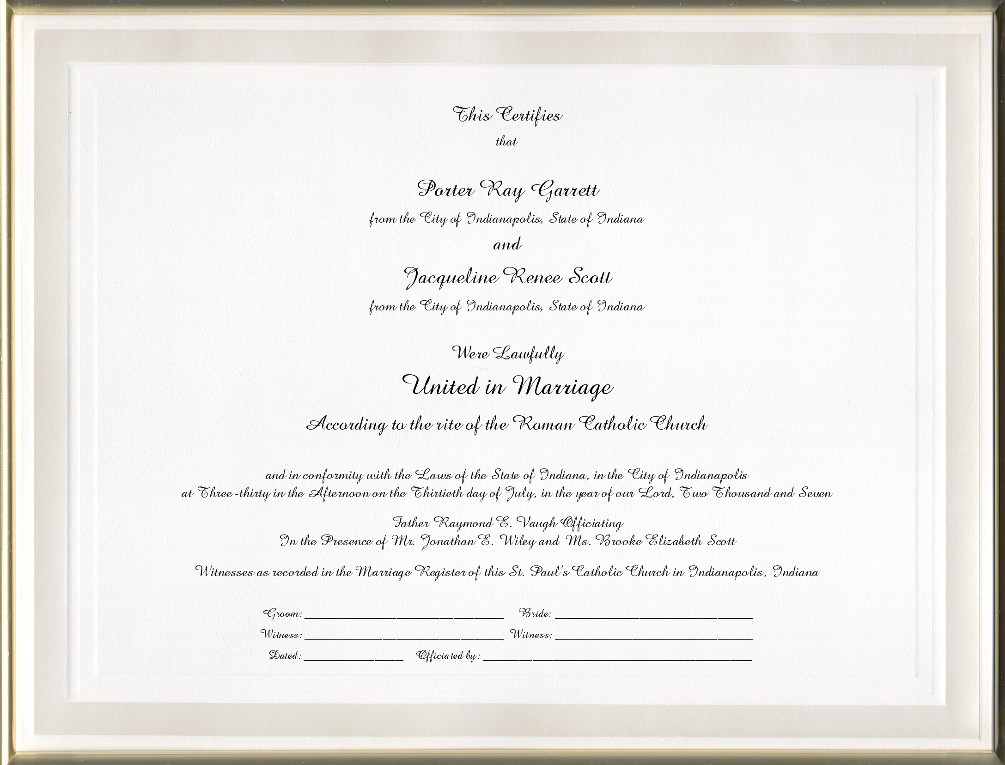 This Certifies
that
Porter Ray Garrett
from the City of Indianapolis, State of Indiana
and
Jacqueline Renee Scott
from the City of Indianapolis, State of Indiana
Were Lawfully
United in Marriage
According to the rite of the Roman Catholic Church
and in conformity with the Laws of the State of Indiana, in the City of Indianapolis
at Three-thirty in the Afternoon on the Thirtieth day of July, in the year of our Lord, Two Thousand and Seven
Father Raymond E. Vaugh Officiating
In the Presence of Mr. Jonathan E. Wiley and Ms. Brooke Elizabeth Scott
Witnesses as recorded in the Marriage Register of this St. Paul's Catholic Church in Indianapolis, Indiana
Groom: Bride:
Witness: Witness:
Dated: Officiated by: